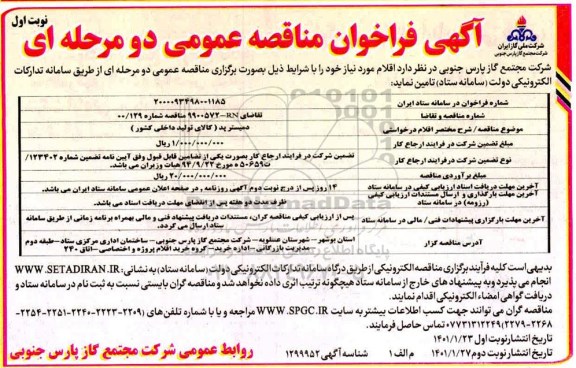 نوبت اول
آگهی فراخوان مناقصه عمومی دو مرحله ای
شرکت ملی گاز ایران
شرکت مجتمع گاز پارس جنوبی
شرکت مجتمع گاز پارس جنوبی در نظر دارد اقلام مورد نیاز خود را با شرایط ذیل بصورت برگزاری مناقصه عمومی دو مرحله ای از طریق سامانه تدارکات
الکترونیکی دولت (سامانه ستاد) تامین نماید:
شماره فراخوان در سامانه ستاد ایران ۲۰۰۰۰۹۳۴۹۸۰۰۱۱۸۵
شماره مناقصه و تقاضا تقاضای RN-۹۹۰۰۵۷۲ مناقصه شماره ۰۰/۱۲۹
موضوع مناقصه / شرح مختصر اقلام درخواستی دمیسترپد (کالای تولید داخلی کشور)
مبلغ تضمین شرکت در فرایند ارجاع کار ۱/۰۰۰/۰۰۰/۰۰۰ ریال
نوع تضمین شرکت در فرایند ارجاع کار تضمین شرکت در فرایند ارجاع کار بصورت یکی از تضامین قابل قبول وفق آیین نامه تضمین شماره ۱۲۳۴۰۲/
ت۵۰۶۵۹ه مورخ ۹۴/۹/۲۲ هیات وزیران می باشد.
مبلغ برآوردی مناقصه ۲۰/۰۰۰/۰۰۰/۰۰۰ ریال
آخرین مهلت دریافت اسناد ارزیابی کیفی در سامانه ستاد ۱۴ روز پس از درج نوبت دوم آگهی روزنامه، در صفحه اعلان عمومی سامانه ستاد ایران می باشد.
آخرین مهلت بارگذاری و ارسال مستندات ارزیابی کیفی
(رزومه) در سامانه ستاد ظرف مدت دو هفته پس از انقضای مهلت دریافت اسناد می باشد.
آخرین مهلت بارگزاری پیشنهادات فنی / مالی در سامانه ستاد پس از ارزیابی کیفی مناقصه گران، مستندات دریافت پیشنهاد فنی و مالی بهمراه برنامه زمانی از طریق سامانه
ستاد ارسال می گردد.
آدرس مناقصه گزار استان بوشهر – شهرستان عسلویه – شرکت مجتمع گاز پارس جنوبی – ساختمان اداری مرکزی ستاد – طبقه دوم
مدیریت بازرگانی – اداره خرید – گروه خرید اقلام پروژه و اختصاصی – اتاق ۲۴۰
بدیهی است کلیه فرآیند برگزاری مناقصه الکترونیکی از طریق درگاه سامانه تدارکات الکترونیکی دولت (سامانه ستاد) به نشانی: WWW.SETADIRAN.IR
انجام می پذیرد و به پیشنهاد های خارج از سامانه ستاد هیچگونه ترتیب اثری داده نخواهد شد و مناقصه گران بایستی نسبت به ثبت نام در سامانه ستاد و
دریافت گواهی امضاء الکترونیکی اقدام نمایند.
مناقصه گران می توانند جهت کسب اطلاعات بیشتر به سایت WWW.SPGC.IR مراجعه و یا با شماره تلفن های (۲۲۰۹-۲۲۲۳-۲۲۴۰-۲۲۵۱-۲۲۵۴-
۲۲۶۸-۲۲۷۹)۰۷۷۳۱۳۱۲۲۴۹ تماس حاصل فرمایند.
تاریخ انتشار نوبت اول ۱۴۰۱/۱/۲۳
تاریخ انتشار نوبت دوم ۱۴۰۱/۱/۲۷ م الف ۱ شناسه آگهی ۱۲۹۹۹۵۲ روابط عمومی شرکت مجتمع گاز پارس جنوبی